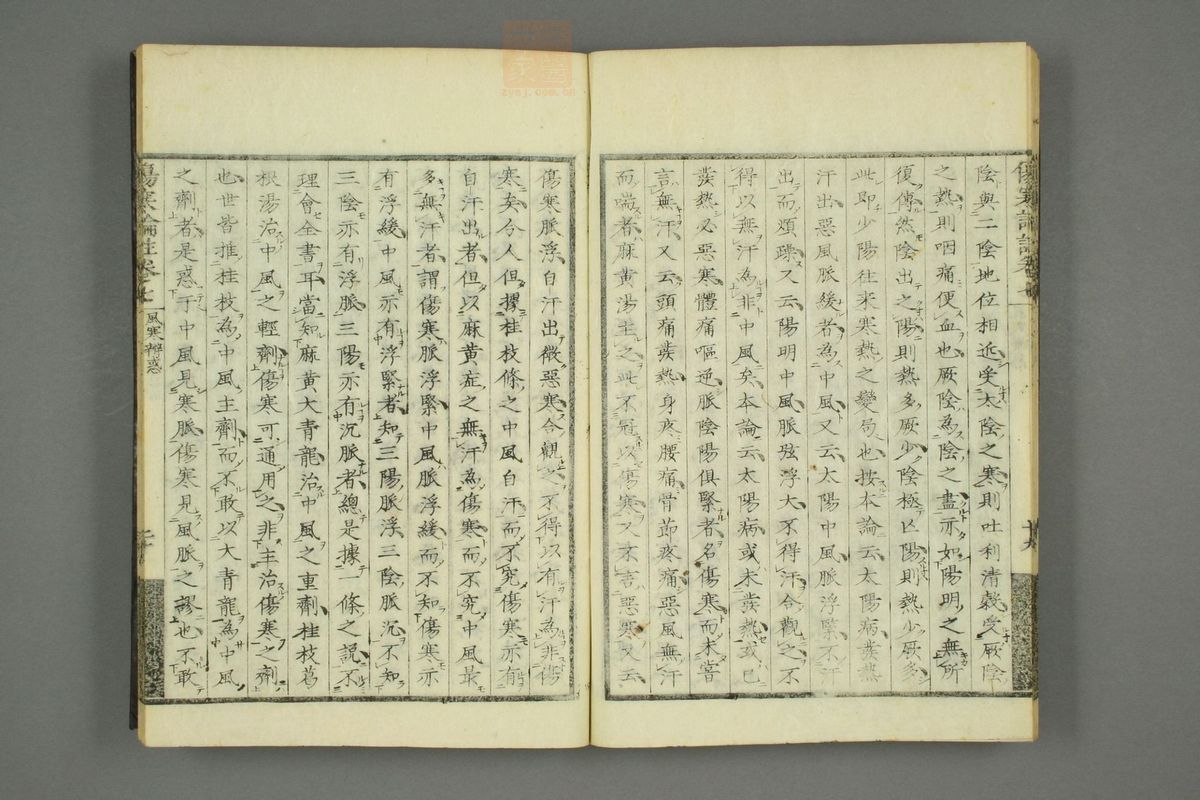 陰與二陰地位相近受太陰之寒則吐利清穀受厥陰
之熱則咽痛便血也厥陰為陰之盡亦如陽明之無所
復傳然陰出之陽則熱多厥少陰極亡陽則熱少厥多
此即少陽往來寒熱之變局也按本論云太陽病發熱
汗出惡風脈緩者為中風又云太陽中風脈浮緊不汗
出而煩躁又云陽明中風脈弦浮大不得汗合觀之不
得以無汗為非中風矣本論云太陽病或未發熱或已
發熱必惡寒體痛嘔逆脈陰陽俱緊者名傷寒而未嘗
言無汗又云頭痛發熱身疼腰痛骨節疼痛惡風無汗
而喘者麻黃湯主之此不冠以傷寒又不言惡寒又云
傷寒脈浮自汗出微惡寒合觀之不得以有汗為非傷
寒矣今人但據桂枝條之中風自汗而不究傷寒亦有
自汗出者但以麻黃症之無汗為傷寒而不究中風最
多無汗者謂傷寒脈浮緊中風脈浮緩而不知傷寒亦
有浮緩中風亦有浮緊者知三陽脈浮三陰脈沉不知
三陰亦有浮脈三陽亦有沉脈者總是據一條之說不
理會全書耳當知麻黃大青龍治中風之重劑桂枝葛
根湯治中風之輕劑傷寒可通用之非主治傷寒之劑
也世皆推桂枝為中風主劑而不敢以大青龍為中風
之劑者是惑于中風見寒脈傷寒見風脈之謬也不敢
傷寒論註卷之七
風寒辨惑